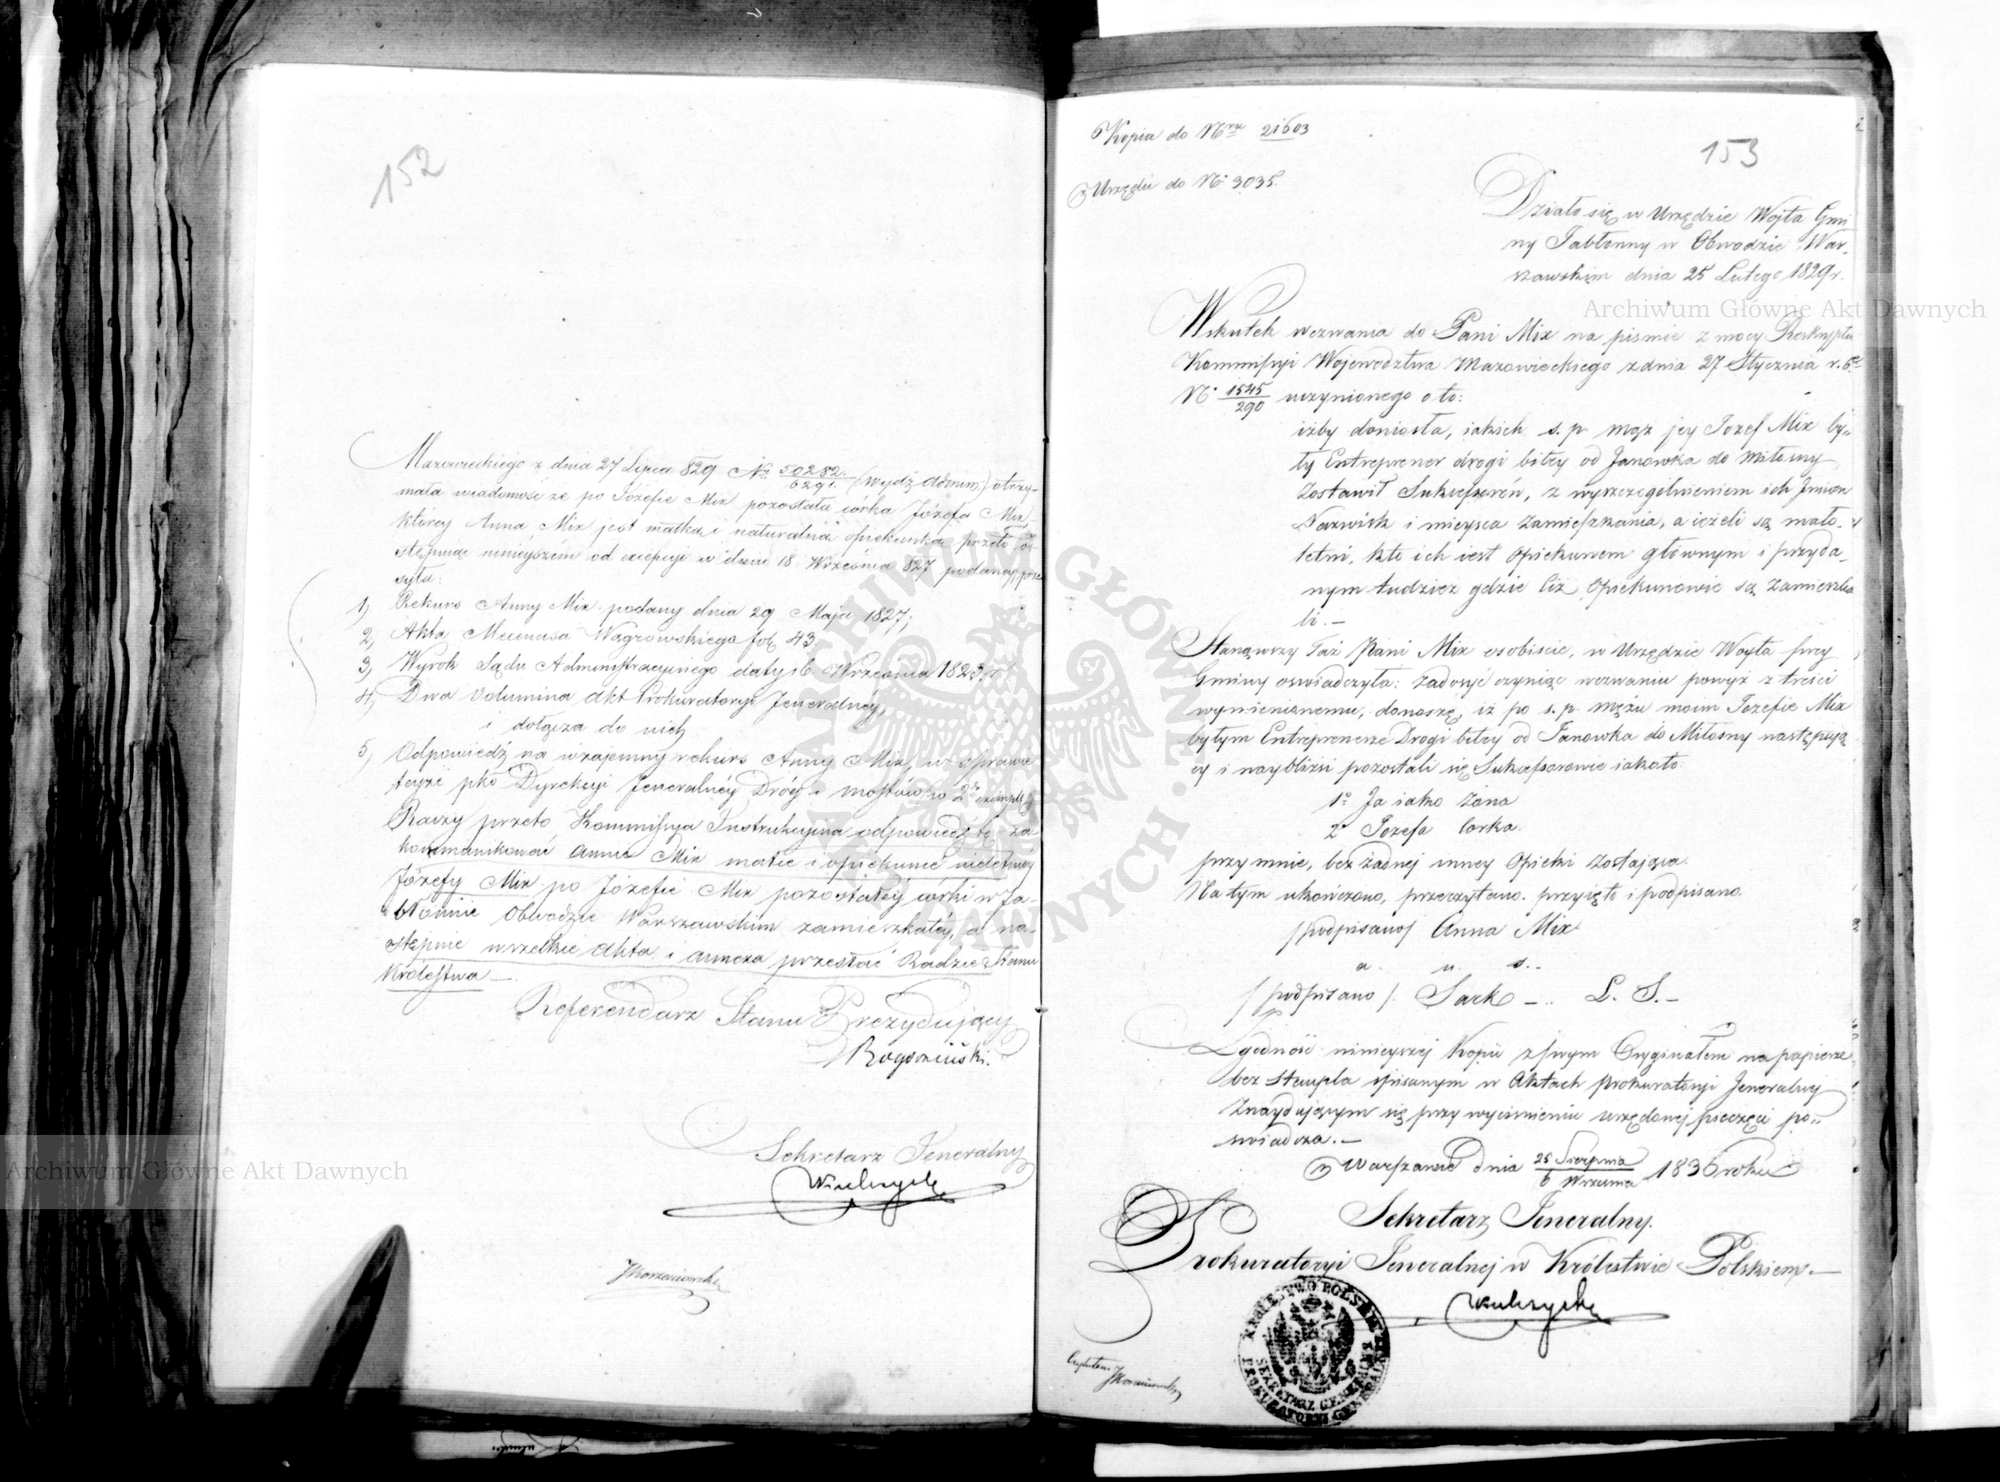 152
Mazowieckiego z dnia 27 Lipca 829 No 50282/6291 (Wydz. Admin:) otrzy-
mała wiadomość że po Józefie Mix pozostała córka Józefa Mix,
któréj Anna Mix jest matką i naturalną opiekunką przeto od-
stępując ninieyszém od excepcyi w dniu 18 Września 827 podanéy, prze-
syła:
1, Rekurs Anny Mix podany dnia 29 Maja 1827;
2, Akta Mecenasa Wągrowskiego fol. 43
3, Wyrok Sądu Administracyjnego daty 16 Września 1823 r.
4, Dwa Volumina Akt Prokuratoryi Jeneralnéy,
i dołącza do nich
5, Odpowiedź na wzajemny rekurs Anny Mix, w sprawie
teyże pko Dyrekcyi Jeneralnéy Dróg i Mostów w 2ch
Raczy przeto Kommissya Instrukcyjna odpowiedź tę za-
kommunikować Annie Mix matce i opiekunce nieletniey
Józefy Mix po Józefie Mix pozostałéy córki w Ja-
błonnie Obwodzie Warszawskim zamieszkałéy, a na-
stępnie wszelkie Akta i annexa przesłać Radzie Stanu
Królestwa —
Referendarz Stanu Prezydujący
Sekretarz Jeneralny
JKorzeniowski
Kopia do Nru 21603
z Urzędu do No 3035.
153
Działo się w Urzędzie Wójta Gmi
ny Jabłonny w Obwodzie War-
szawskim dnia 25 Lutego 1829 r.
Wskutek wezwania do Pani Mix na piśmie z mocy Reskryptu
Kommissyi Województwa Mazowieckiego z dnia 27 Stycznia r. b.
No 1545/290 uczynionego o to:
iżby doniosła, jakich s. p. mąż jey Jozef Mix by-
ły Entreprener drogi bitey od Janowka do Miłosny
zostawił Sukcessorów, z wyszczególnieniem ich Imion
Nazwisk i mieysca zamieszkania, a jeżeli są mało-
letni, kto ich jest Opiekunem głównym i przyda-
nym tudzież gdzie Ciż Opiekunowie są zamieszka
li. —
Stanąwszy Taż Pani Mix osobiście, w Urzędzie Woyta przy
Gminy oświadczyła: Zadosyć czyniąc wezwaniu powyż z treści
wymienionemu, donoszę, iż po s. p. mężu moim Jozefie Mix
byłym Entreprenerze Drogi bitey od Janowka do Miłosny następują
cy i naybliżsi pozostali się Sukcessorowie jakoto:
1o Ja jako Żona
2o Jozefa Corka.
przy mnie, bez żadnej inney Opieki zostająca.
Na tym ukończono, przeczytano, przyjęto i podpisano
/podpisano/ Anna Mix
/podpisano/. Sark — . L. S. —
Zgodność ninieyszéj Kopii z swym Oryginałem na papierze
bez stempla spisanym w Aktach Prokuratoryi Jeneralnej
Znaydującym się przy wyciśnieniu urzędowej pieczęci po-
świadcza. —
w Warszawie dnia 25 Sierpnia/6 Września 1836 roku
Sekretarz Jeneralny.
Prokuratoryi Jeneralnej w Królestwie Polskiem. —
KRÓLESTWO POLSKIE
SEKRETARZ GENERALNY
PROKURATORYI GENERALNEY
Czytałem JKorzeniowski
Archiwum Główne Akt Dawnych
Archiwum Główne Akt Dawnych
ARCHIWUM GŁÓWNE AKT DAWNYCH